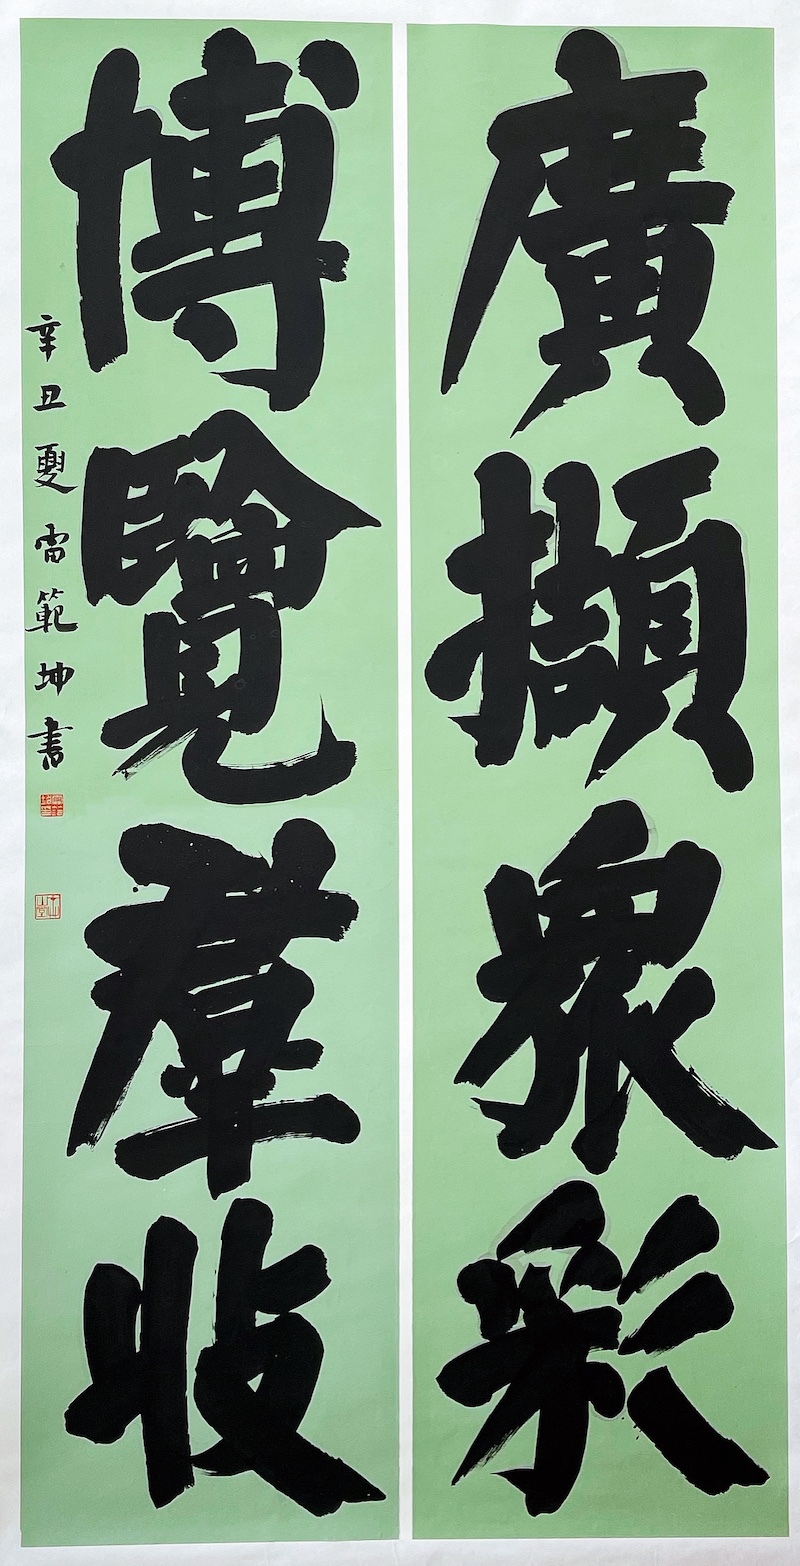 廣擷眾彩
博覽羣收
辛丑夏雷範坤書